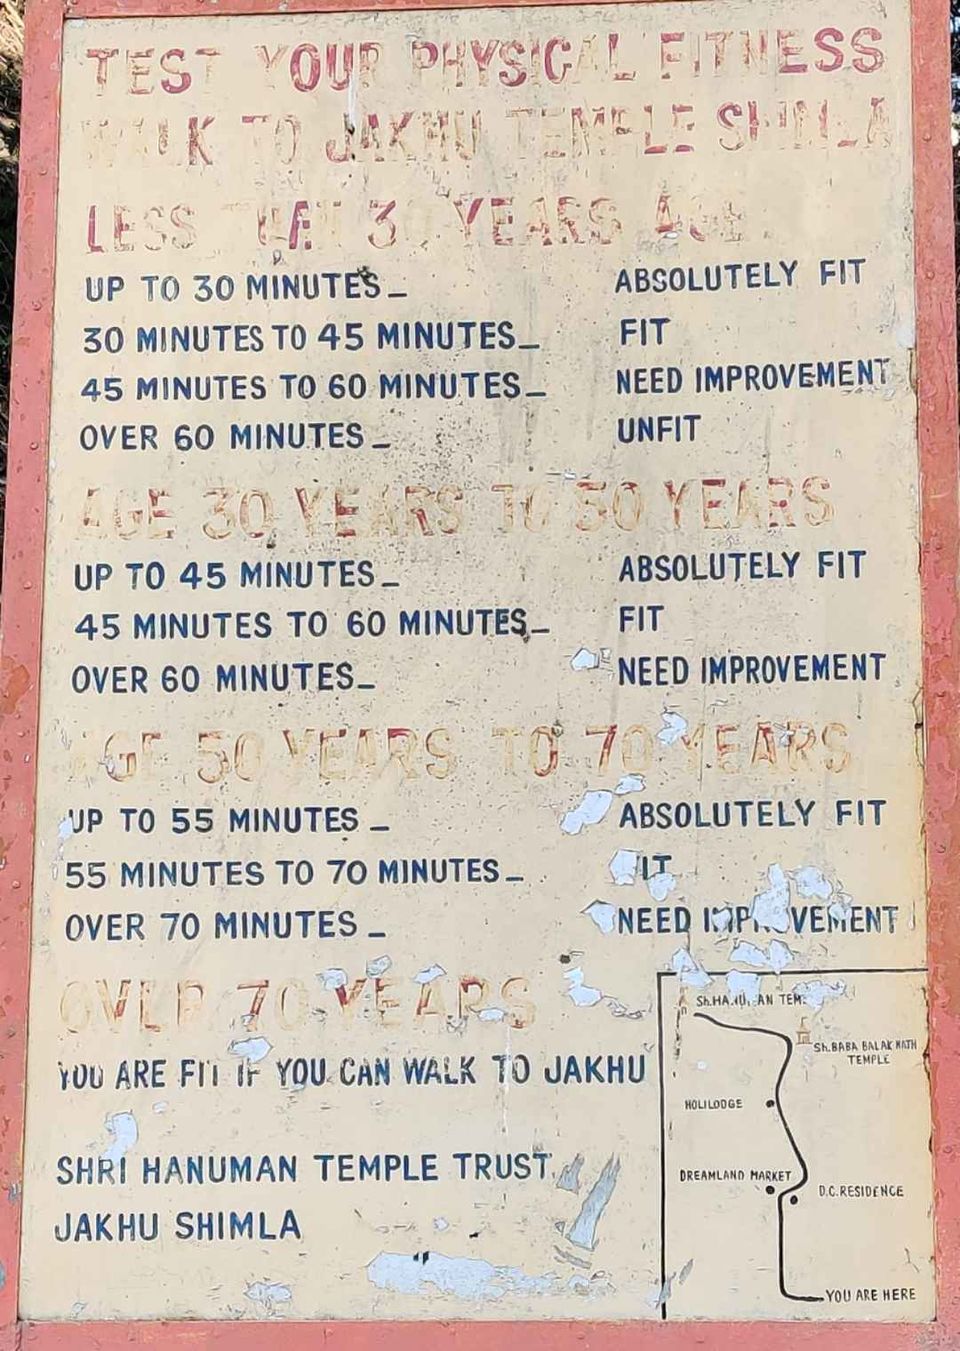 TEST YOUR PHYSICAL FITNESS
WALK TO JAKHU TEMPLE SHIMLA
LESS THAN 30 YEARS AGE
UP TO 30 MINUTES_ ABSOLUTELY FIT
30 MINUTES TO 45 MINUTES_ FIT
45 MINUTES TO 60 MINUTES_ NEED IMPROVEMENT
OVER 60 MINUTES_ UNFIT
AGE 30 YEARS TO 50 YEARS
UP TO 45 MINUTES_ ABSOLUTELY FIT
45 MINUTES TO 60 MINUTES_ FIT
OVER 60 MINUTES_ NEED IMPROVEMENT
AGE 50 YEARS TO 70 YEARS
UP TO 55 MINUTES_ ABSOLUTELY FIT
55 MINUTES TO 70 MINUTES_ FIT
OVER 70 MINUTES_ NEED IMPROVEMENT
OVER 70 YEARS
YOU ARE FIT IF YOU CAN WALK TO JAKHU
SHRI HANUMAN TEMPLE TRUST
JAKHU SHIMLA
Sh.HANUMAN TEM.
Sh.BABA BALAK NATH
TEMPLE
HOLILODGE
DREAMLAND MARKET
D.C.RESIDENCE
YOU ARE HERE